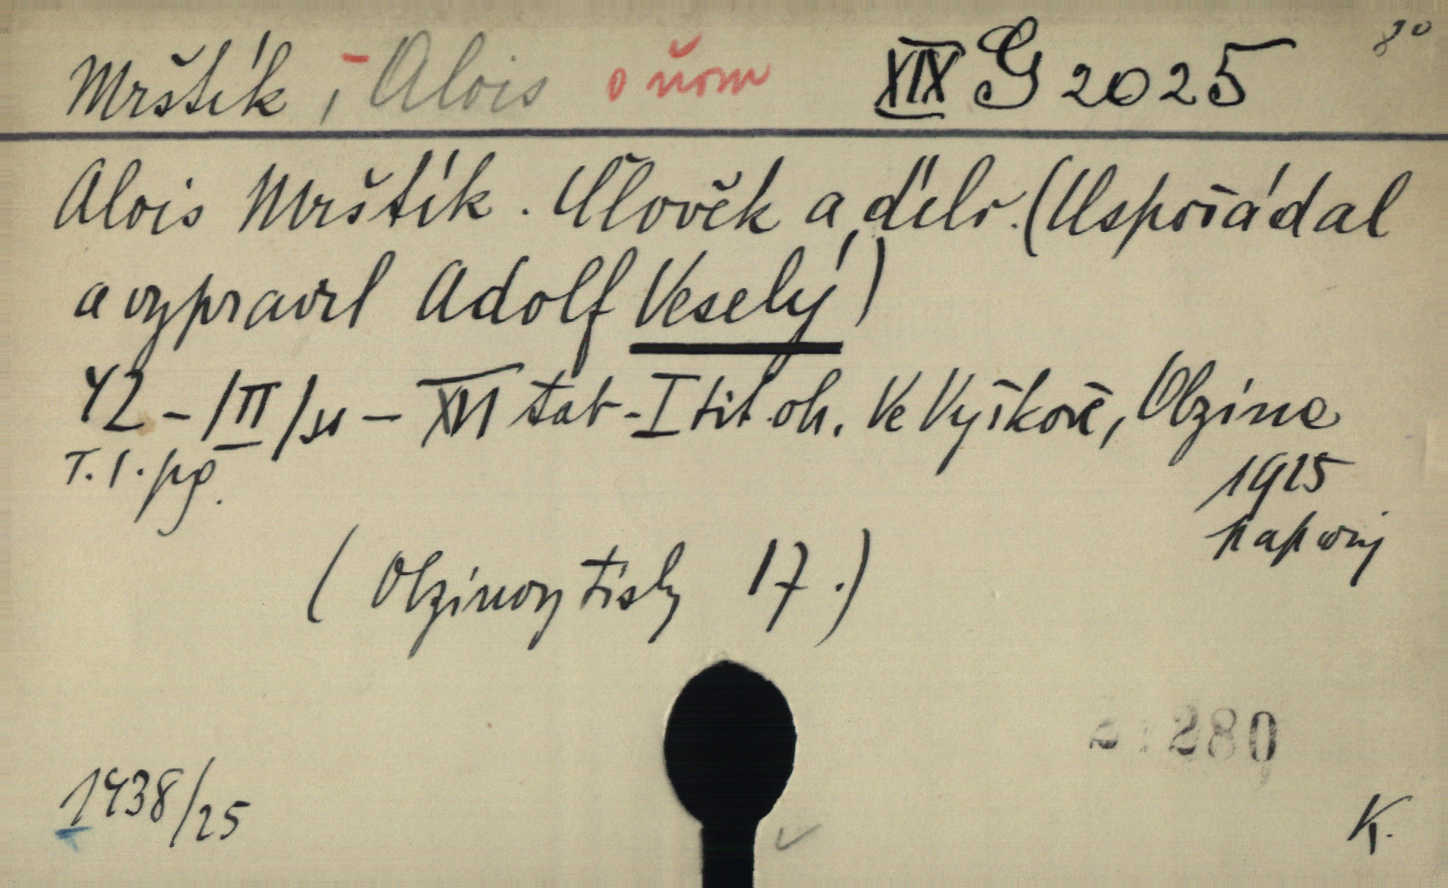 Mrštík, - Alois o ňom XIX G 2025 8°
Alois Mrštík. Člověk a dílo. (Uspořádal
a vypravil Adolf Veselý)
42 - /II/ - XVI tab - I tit. ob. Ve Vyškově, Obzina
T. I. pg.
1925
papier
(Obzinovy tisky 17.)
280
1438/25
K.